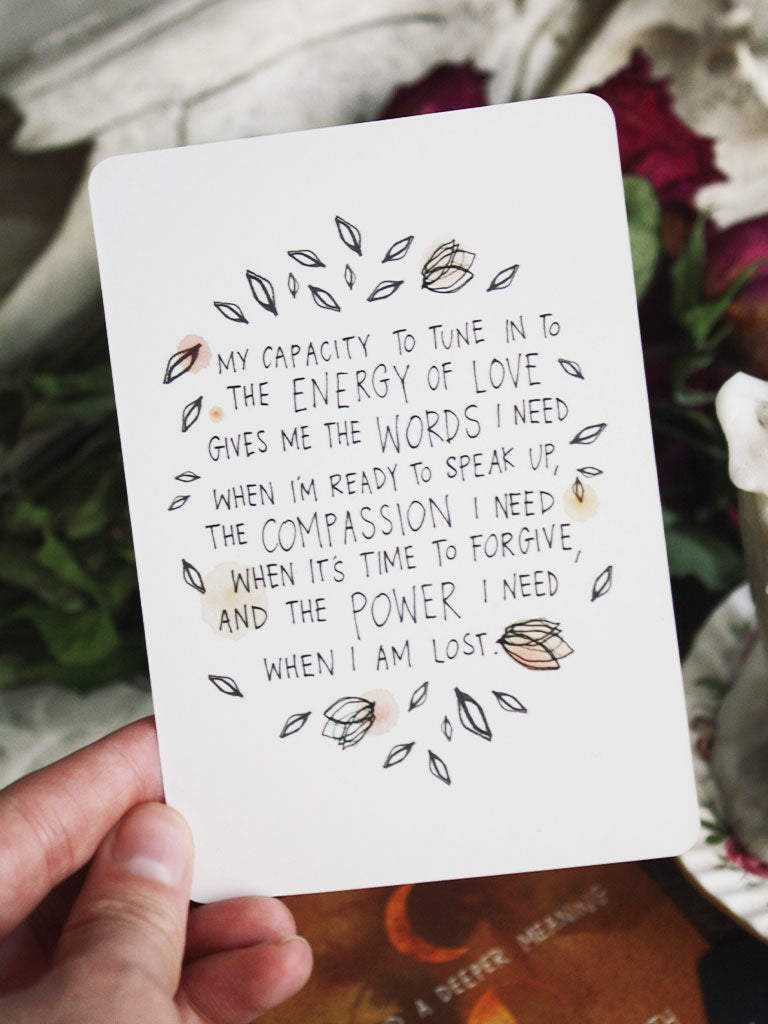 MY CAPACITY TO TUNE IN TO
THE ENERGY OF LOVE
GIVES ME THE WORDS I NEED
WHEN I'M READY TO SPEAK UP,
THE COMPASSION I NEED
WHEN IT'S TIME TO FORGIVE,
AND THE POWER I NEED
WHEN I AM LOST.
A DEEPER MEANING